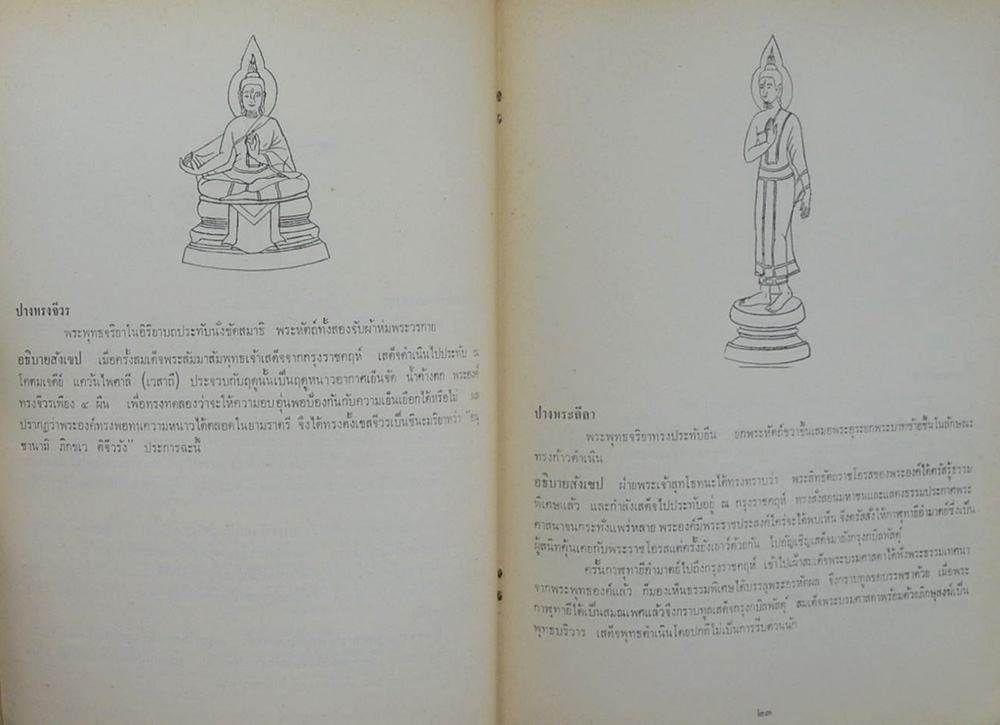 ปางทรงจีวร
พระพุทธจริยาในอิริยาบถประทับนั่งขัดสมาธิ พระหัตถ์ทั้งสองจับผ้าห่มพระวรกาย
อธิบายสังเขป เมื่อครั้งสมเด็จพระสัมมาสัมพุทธเจ้าเสด็จจากกรุงราชคฤห์ เสด็จดำเนินไปประทับ ณ
โคตมเจดีย์ แคว้นไพศาลี (เวสาลี) ประจวบกับฤดูนั้นเป็นฤดูหนาวอากาศเย็นจัด น้ำค้างตก พระองค์
ทรงจีวรเพียง ๔ ผืน เพื่อทรงทดลองว่าจะให้ความอบอุ่นพอป้องกันกับความเย็นเยือกได้หรือไม่ ผล
ปรากฏว่าพระองค์ทรงพอทนความหนาวได้ตลอดในยามราตรี จึงได้ทรงตั้งเขสจีวรเป็นชินะมริยาทว่า "อนุ
ชานามิ ภิกขเว ติจีวรัง" ประการฉะนี้
ปางพระลีลา
พระพุทธจริยาทรงประทับยืน ยกพระหัตถ์ขวาขึ้นเสมอพระอุระยกพระบาทซ้ายขึ้นในลักษณะ
ทรงก้าวดำเนิน
อธิบายสังเขป ฝ่ายพระเจ้าสุทโธทนะได้ทรงทราบว่า พระสิทธัตถราชโอรสของพระองค์ได้ตรัสรู้ธรรม
พิเศษแล้ว และกำลังเสด็จไปประทับอยู่ ณ กรุงราชคฤห์ ทรงสั่งสอนมหาชนและแสดงธรรมประกาศพระ
ศาสนาจนกระทั่งแพร่หลาย พระองค์มีพระราชประสงค์ใคร่จะได้พบเห็น จึงตรัสสั่งให้กาฬุทายีอำมาตย์ซึ่งเป็น
ผู้สนิทคุ้นเคยกับพระราชโอรสแต่ครั้งยังเยาว์ด้วยกัน ไปอัญเชิญเสด็จมายังกรุงกบิลพัสดุ์
ครั้นกาฬุทายีอำมาตย์ไปถึงกรุงราชคฤห์ เข้าไปเฝ้าสมเด็จพระบรมศาสดาได้ฟังพระธรรมเทศนา
จากพระพุทธองค์แล้ว ก็มองเห็นธรรมพิเศษได้บรรลุพระอรหัตผล จึงกราบทูลขอบรรพชาด้วย เมื่อพระ
กาฬุทายีได้เป็นสมณเพศแล้วจึงกราบทูลเสด็จกรุงกบิลพัสดุ์ สมเด็จพระบรมศาสดาพร้อมด้วยภิกษุสงฆ์เป็น
พุทธบริวาร เสด็จพุทธดำเนินโดยปกติไม่เป็นการรีบด่วนนัก
๒๓